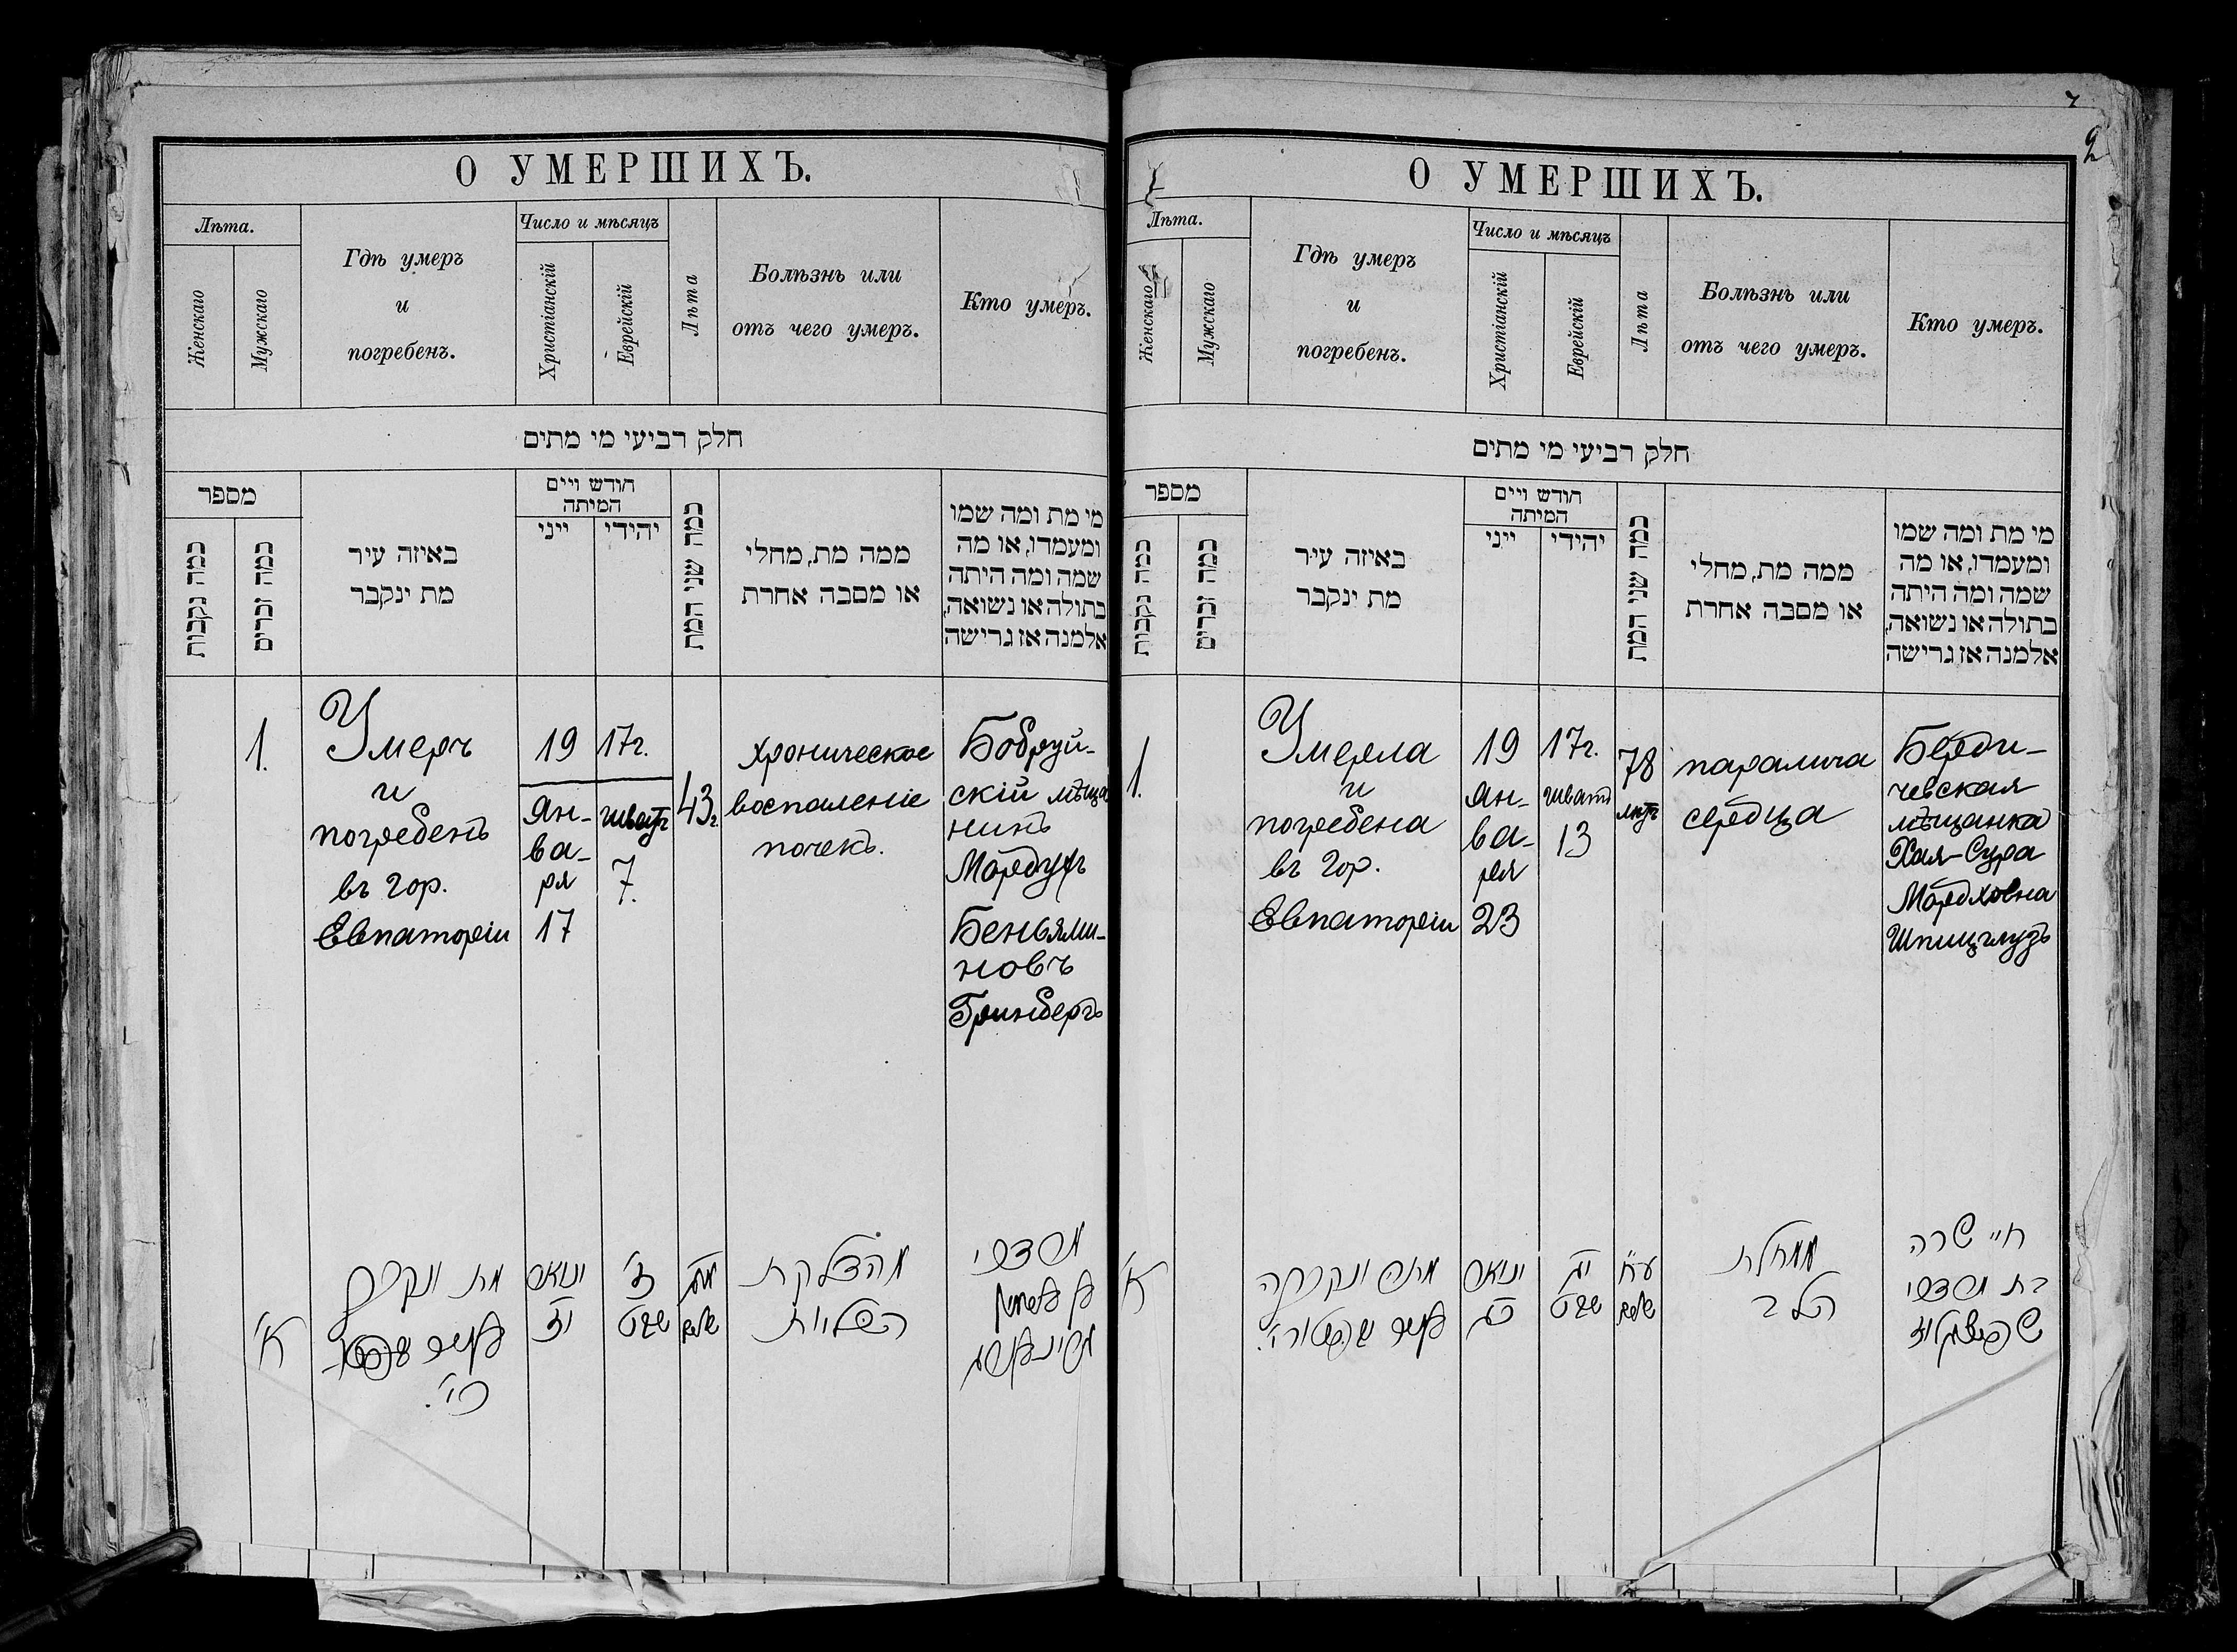 О УМЕРШИХЪ.
Лѣта.
Женскаго
Мужскаго
Гдѣ умеръ
и
погребенъ.
Число и мѣсяцъ
Христіанскій
Еврейскій
Лѣта
Болѣзнь или
отъ чего умеръ.
Кто умеръ.
חלק רביעי מי מתים
מספר
כמה נקבות
כמה זכרים
באיזה עיר
מת ינקבר
חודש ויים
המיתה
ייני
יהידי
כמה שני המת
ממה מת, מחלי
או מסבה אחרת
מי מת ומה שמו
ומעמדו, או מה
שמה ומה היתה
בתולה או נשואה,
אלמנה אז גרישה
1.
Умеръ
и
погребенъ
въ гор.
Евпаторіи
19
17г.
Ян-
ва-
ря
17
шватъ
7.
43г.
Хроническое
воспаленіе
почекъ.
Бобруй-
скій мѣща
нинъ
Мордухъ
Беньями-
новъ
Гринбергъ
א'
מת ונקבר
בעיר
ינואר
יז
ז'
שבט
מג
שנים
מהצלקת
הכליות
מרדכי
בן בנימין
גרינבערג
О УМЕРШИХЪ.
2
Лѣта.
Женскаго
Мужскаго
Гдѣ умеръ
и
погребенъ.
Число и мѣсяцъ
Христіанскій
Еврейскій
Лѣта
Болѣзнь или
отъ чего умеръ.
Кто умеръ.
חלק רביעי מי מתים
מספר
כמה נקבות
כמה זכרים
באיזה עיר
מת ינקבר
חודש ויים
המיתה
ייני
יהידי
כמה שני המת
ממה מת, מחלי
או מסבה אחרת
מי מת ומה שמו
ומעמדו, או מה
שמה ומה היתה
בתולה או נשואה,
אלמנה אז גרישה
1.
Умерла
и
погребена
въ гор.
Евпаторіи
19
17г.
Ян-
ва-
ря
23
шватъ
13
78
лѣтъ
паралича
сердца
Берди-
чевская
мѣщанка
Хая-Сура
Мордховна
Шпицглузъ
א'
מתה ונקברה
בעיר
ינואר
כג
יג
שבט
ע"ח
שנים
ממחלת
הלב
חי' שרה
בת מרדכי
שפיצגלוז